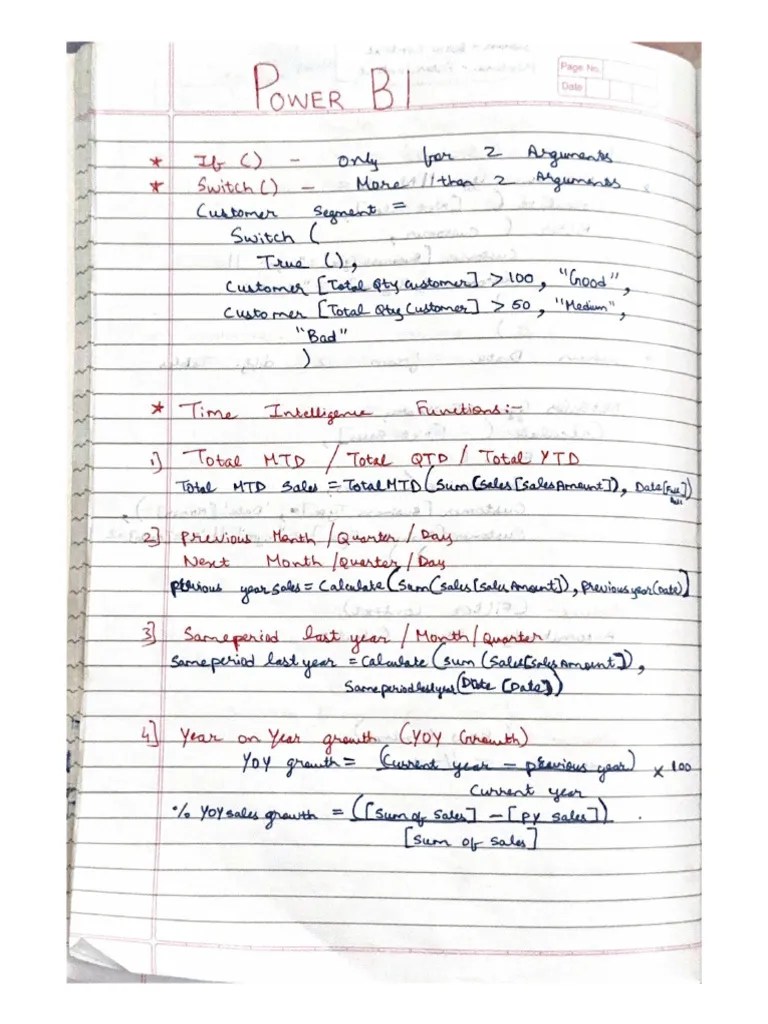 Page No.
Date
POWER BI
* If () - only for 2 Arguments
* Switch () - More than 2 Arguments
Customer Segment =
Switch (
True (),
Customer [Total Qty Customer] > 100, "Good",
Customer [Total Qty Customer] > 50, "Medium",
"Bad"
)
* Time Intelligence Functions:-
1) Total MTD / Total QTD / Total YTD
Total MTD Sales = Total MTD (Sum (Sales [Sales Amount]), Date [Full
2] Previous Month / Quarter / Day
Next Month / Quarter / Day
previous year sales = Calculate (Sum (sales [sales Amount]), previous year (Date)]
3] Sameperiod last year / Month / Quarter
Sameperiod last year = Calculate (Sum (Sales [Sales Amount]),
Sameperiodlastyear (Date [Date]))
4] Year on Year growth (YOY Growth)
YOY growth = (Current year - previous year) x 100
Current year
% YOY sales growth = ([Sum of Sales] - [PY sales])
[Sum of sales]